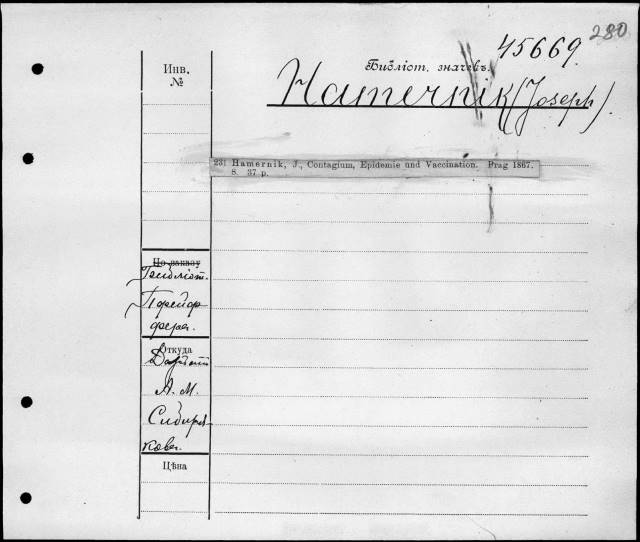 280
45669
Инв.
№
Библіот. значекъ.
Hamernik (Joseph).
231 Hamernik, J., Contagium, Epidemie und Vaccination. Prag 1867.
8. 37 p.
По заказу
Библіот.
Пфейф
фера.
Откуда
А. М.
Сибиря-
кова.
Цѣна